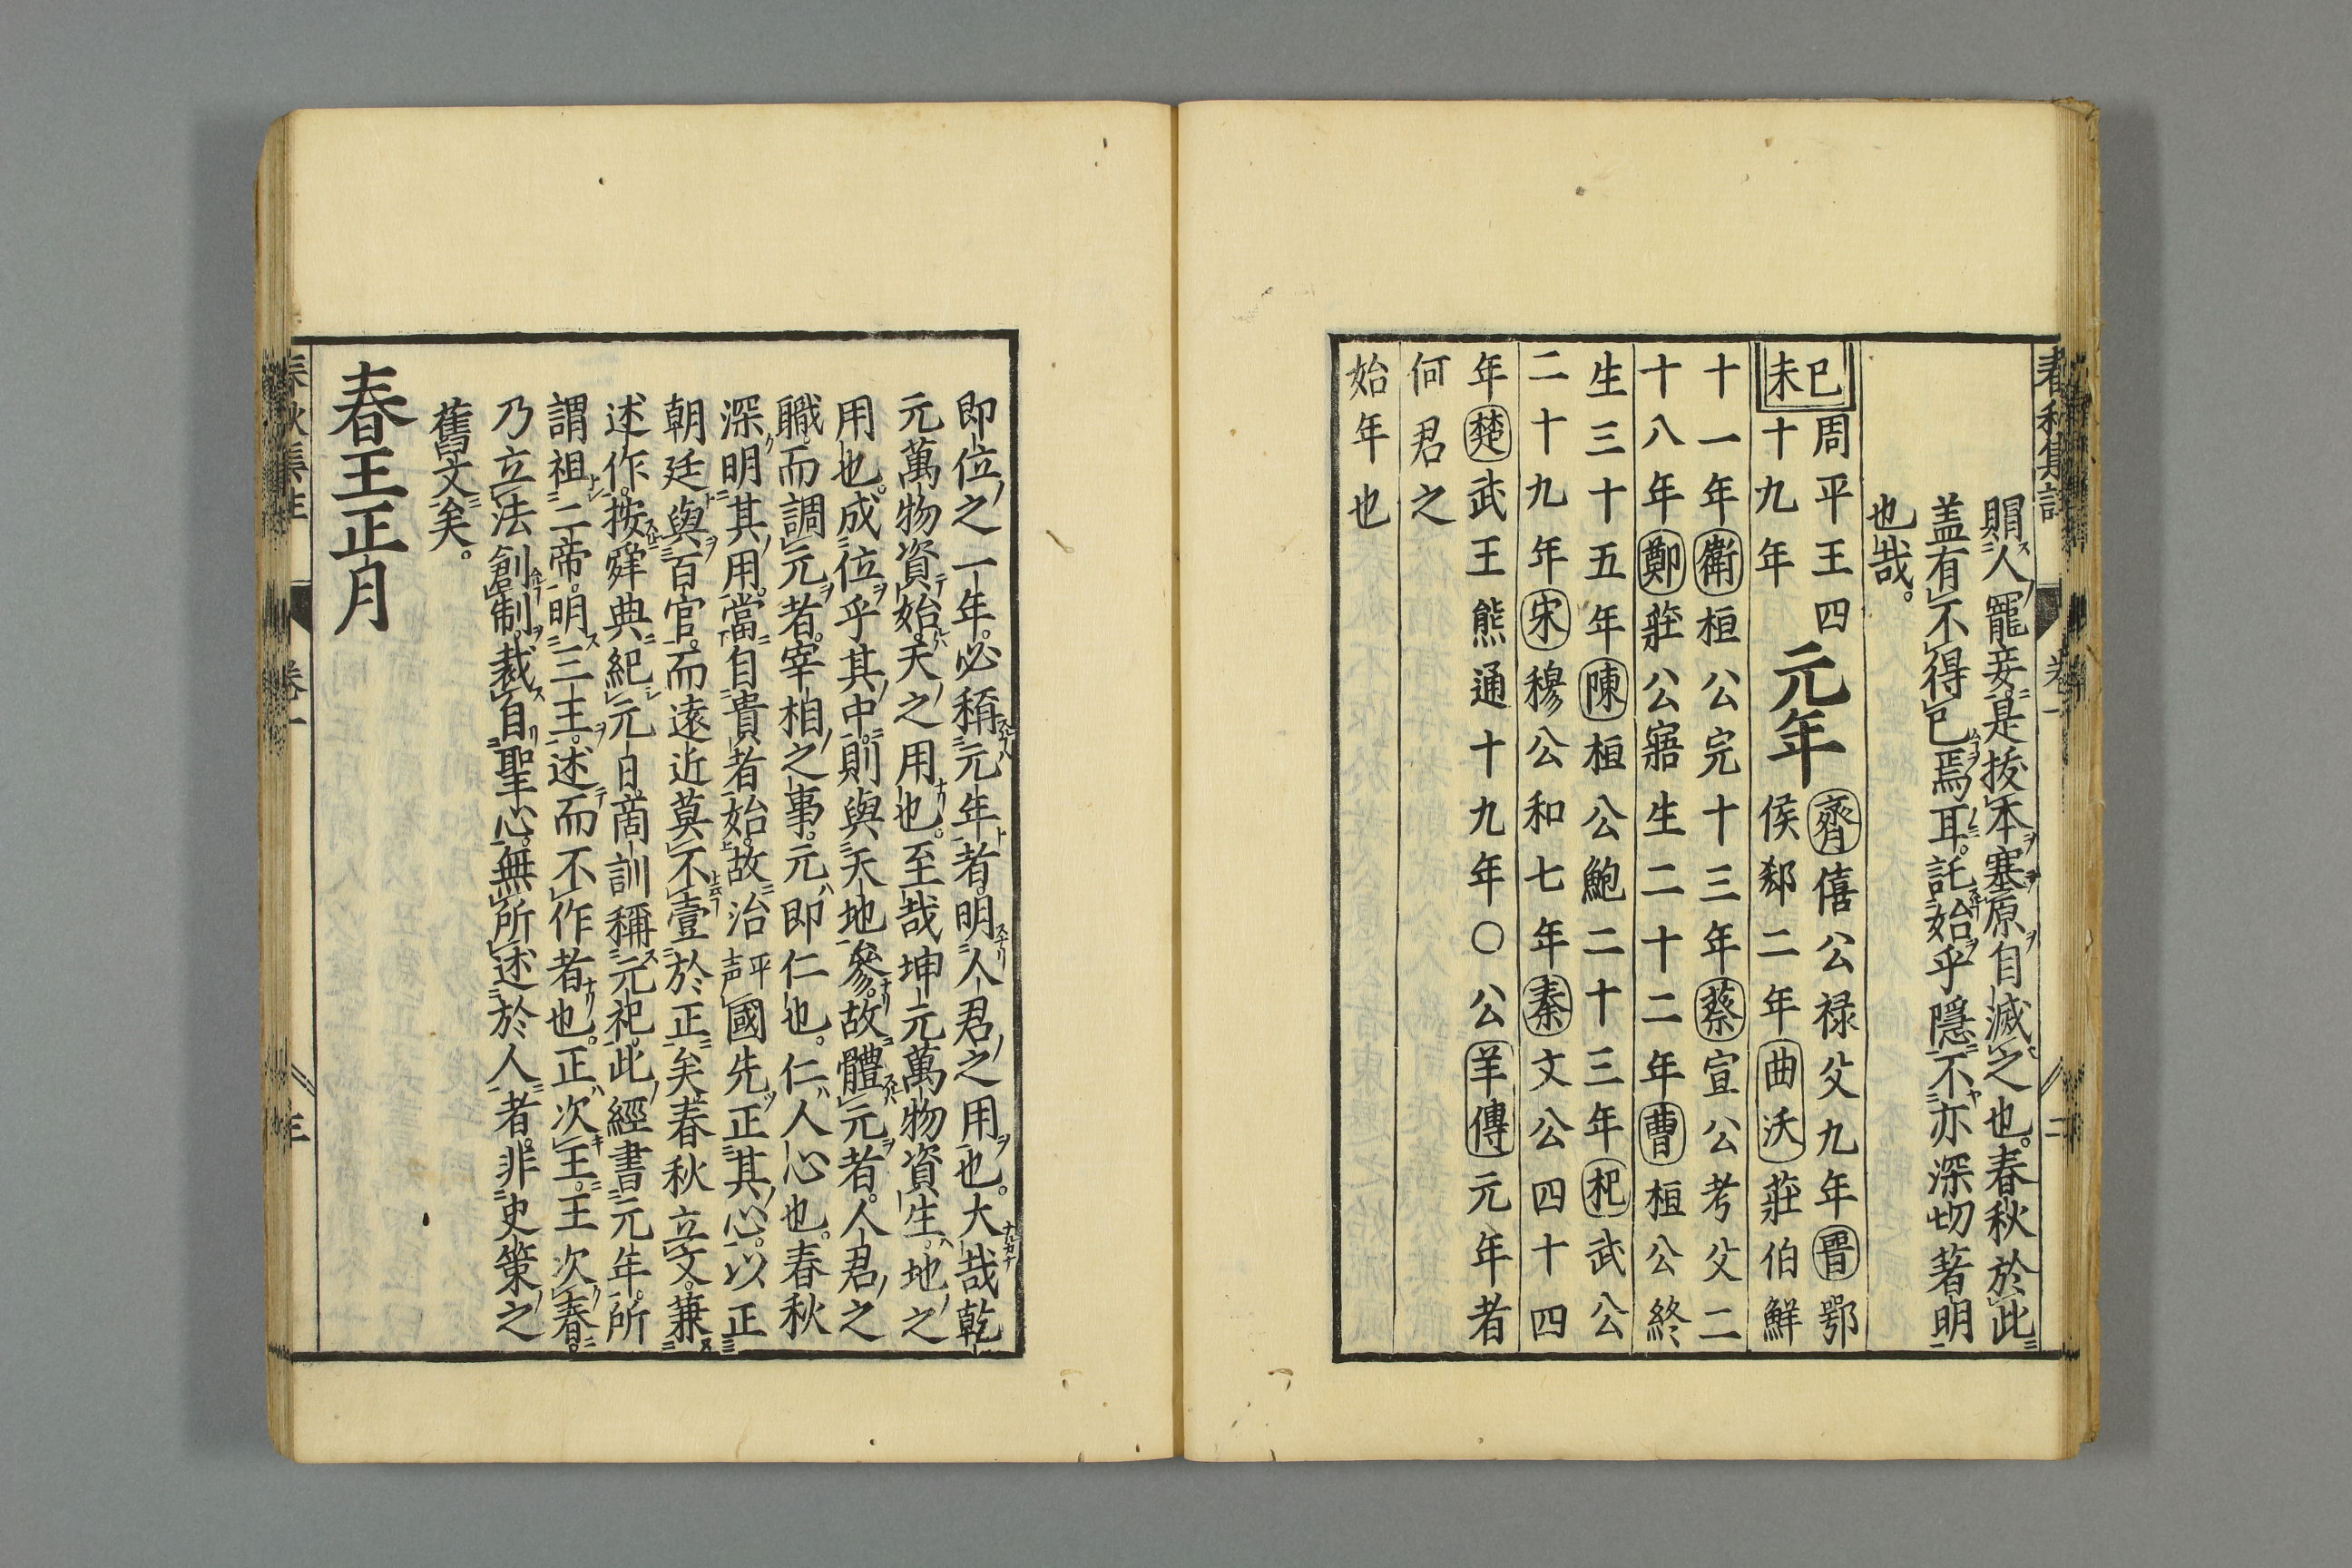 賵人寵妾是拔本塞原自滅之也。春秋於此
盖有不得已焉耳。託始乎隱不亦深切著明
也哉。
己未
周平王四
十九年
元年
齊僖公禄父九年晉鄂
侯郄二年曲沃莊伯鮮
十一年衛桓公完十三年蔡宣公考父二
十八年鄭莊公寤生二十二年曹桓公終
生三十五年陳桓公鮑二十三年杞武公
二十九年宋穆公和七年秦文公四十四
年楚武王熊通十九年〇公羊傳元年者
何君之
始年也
即位之一年。必稱元年者。明人君之用也。大哉乾
元萬物資始。天之用也。至哉坤元萬物資生。地之
用也。成位乎其中。則與天地參。故體元者。人君之
職。而調元者。宰相之事。元即仁也。仁人心也。春秋
深明其用。當自貴者始。故治平声國先正其心。以正
朝廷與百官。而遠近莫不壹於正矣。春秋立文。兼
述作。按舜典紀元日。商訓稱元祀。此經書元年。所
謂祖二帝。明三王。述而不作者也。正次王。王次春。
乃立法創制。裁自聖心。無所述於人者。非史策之
舊文矣。
春王正月
春秋集註
卷一
二
春秋集註
卷一